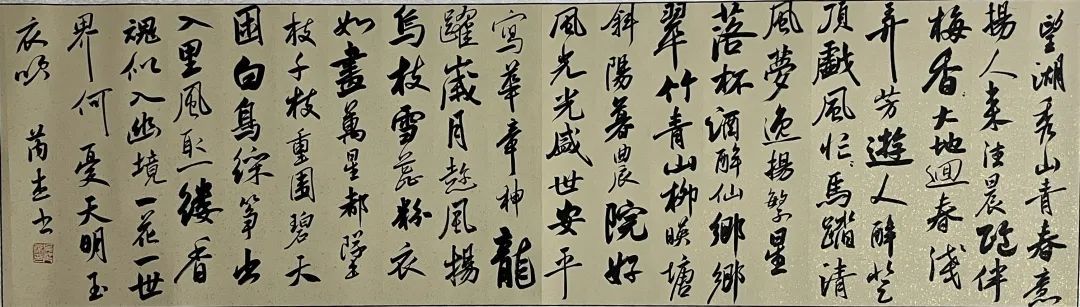 望湖秀山青春意
揚人来清晨跑伴
梅香大地迴春浅
弄芳遊人醉登
頂戯風忙馬踏清
風夢逸揚繁星
落杯酒醉仙鄉鄉
翠竹青山柳映塘
斜陽暮農院好
風光光盛世安平
寫華章神龍
躍歲月趁風揚
烏枝雪蕊粉衣
如畫萬星都
枝千枝重圍碧天
困白鳥綵筝出
入里風縷香
魂似入幽境一花一世
界何憂天明玉
衣
芮书